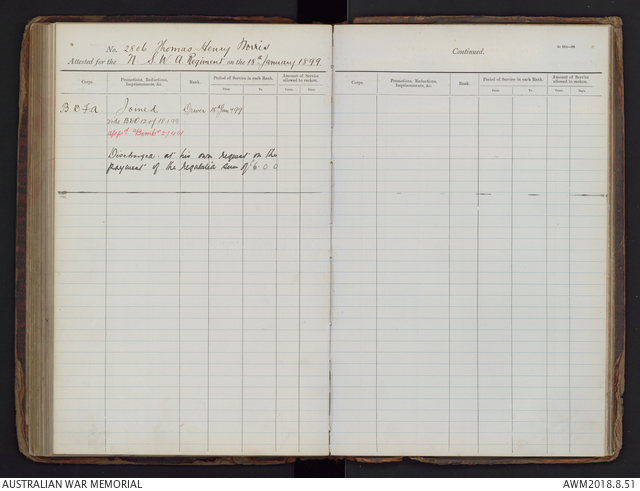 No. 2506 Thomas Henry Norris
Attested for the N. S. W. A Regiment on the 18th January 1899.
Corps.
Promotions, Reductions, Imprisonments, &c.
Rank.
Period of Service in each Rank.
From
To
Amount of Service allowed to reckon.
Years.
Days.
Joined
Driver 18 Jan 99
Discharged at his own request on the
payment of the sum of £ 6 0 0
Continued.
Corps
Promotions, Reductions, Imprisonments, &c.
Rank.
Period of Service in each Rank.
From
To
Amount of Service allowed to reckon.
Years.
Days.
AUSTRALIAN WAR MEMORIAL
AWM2018.8.51